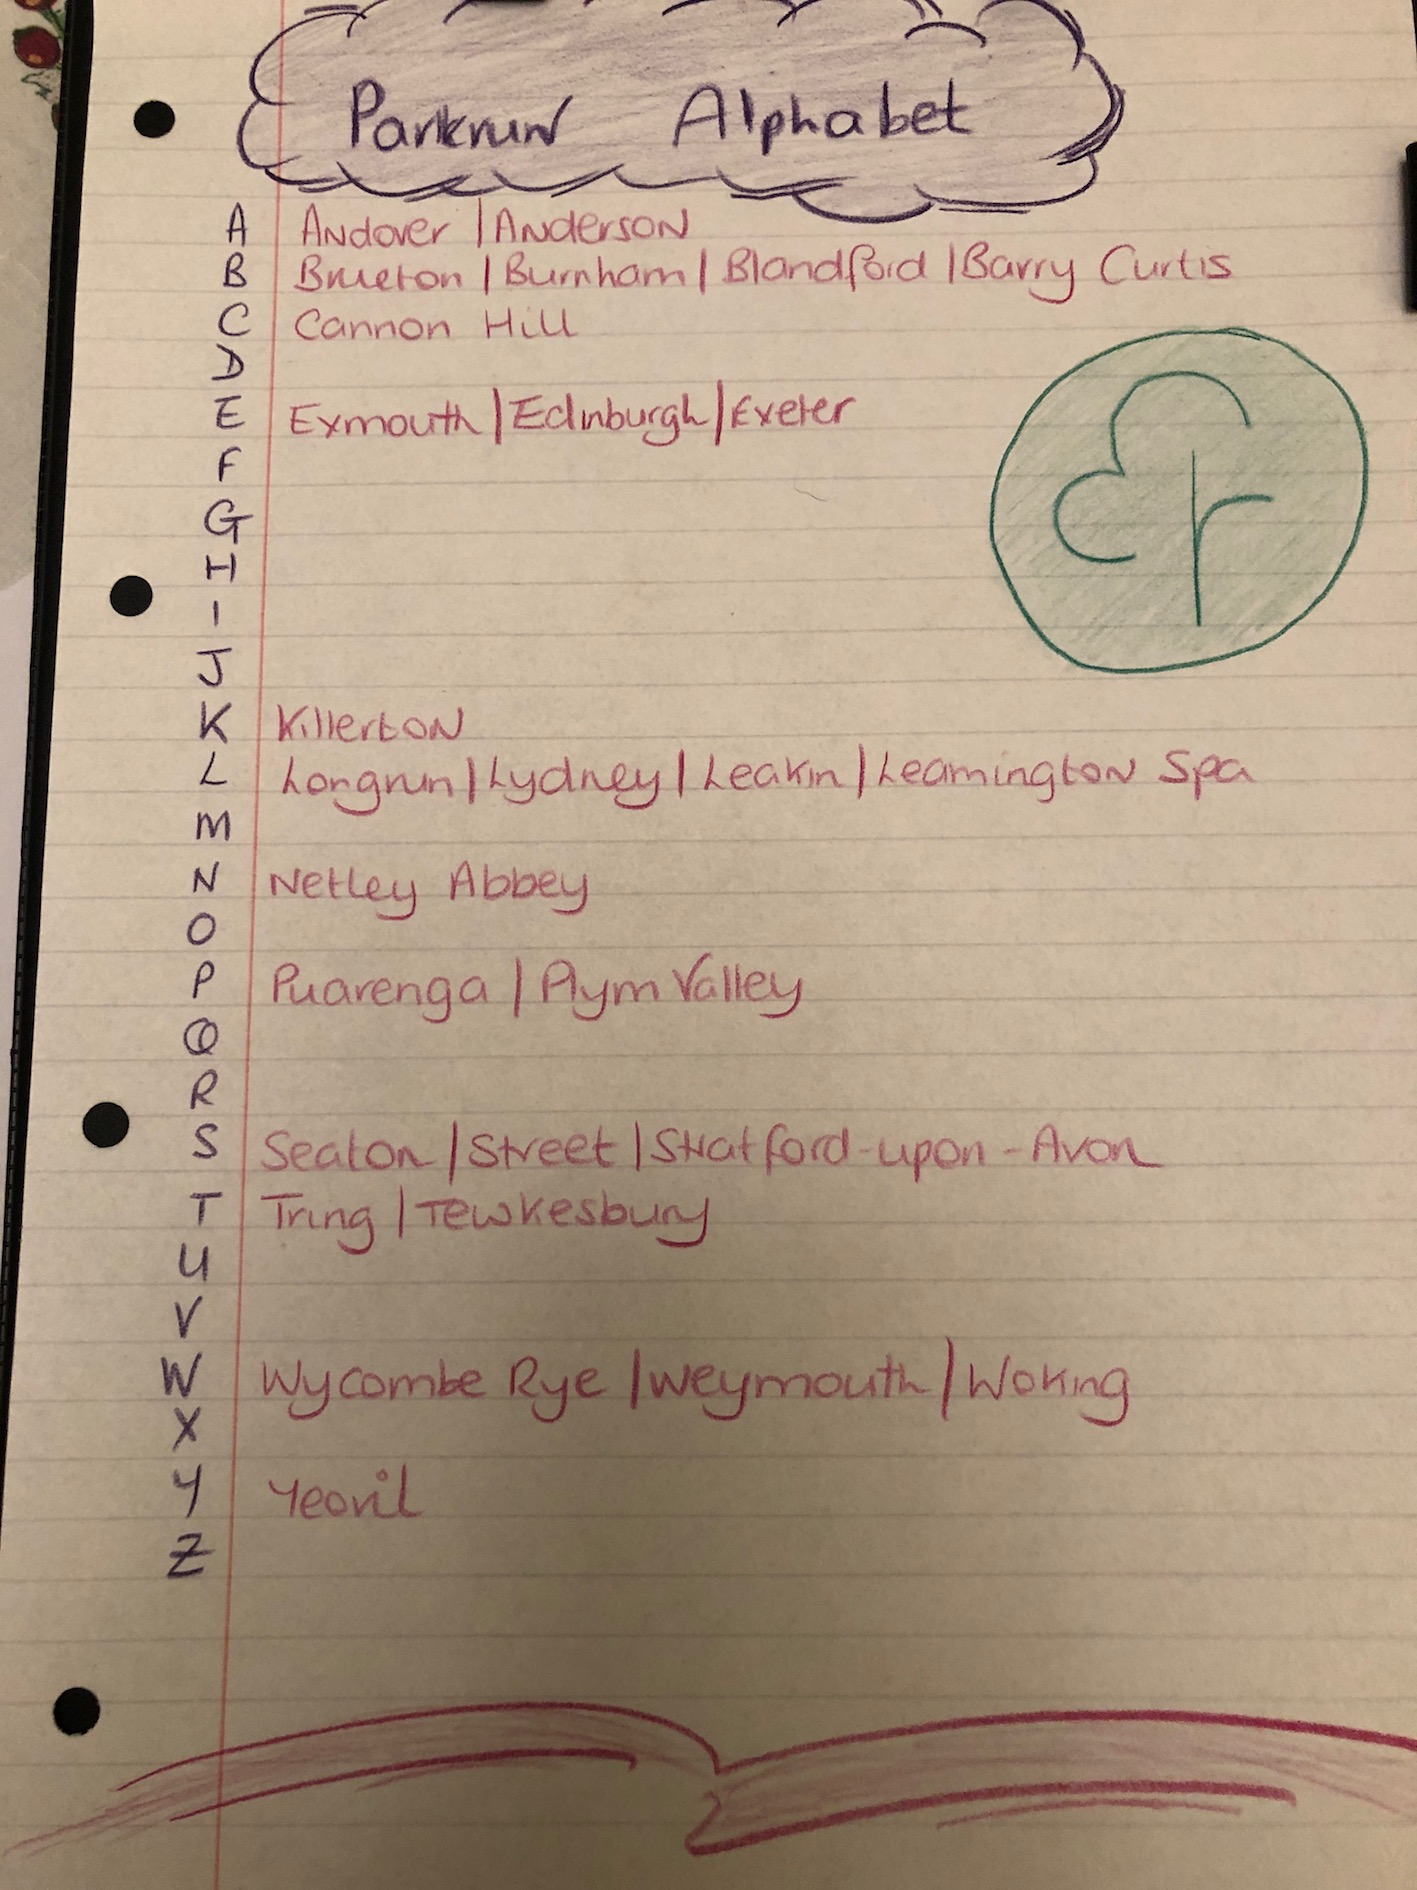 Parkrun Alphabet
A Andover | Anderson
B Brueton | Burnham | Blandford | Barry Curtis
C Cannon Hill
D
E Exmouth | Edinburgh | Exeter
F
G
H
I
J
K Killerton
L Longrun | Lydney | Leakin | Leamington Spa
M
N Netley Abbey
O
P Puarenga | Plym Valley
Q
R
S Seaton | Street | Stratford-upon-Avon
T Tring | Tewkesbury
U
V
W Wycombe Rye | Weymouth | Woking
X
Y Yeovil
Z